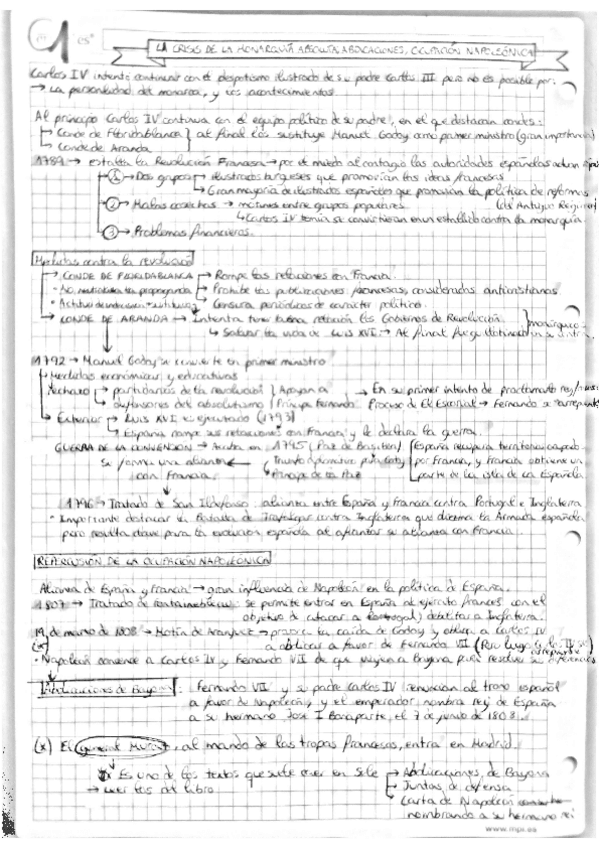 1
LA CRISIS DE LA MONARQUÍA ABSOLUTA: ABDICACIONES, OCUPACIÓN NAPOLEÓNICA
Carlos IV intentó continuar con el despotismo ilustrado de su padre Carlos III pero no es posible por:
→ La personalidad del monarca, y los acontecimientos.
Al principio Carlos IV continua con el equipo político de su padre, en el que destacan condes:
Conde de Floridablanca } al final los sustituye Manuel Godoy como primer ministro (gran importancia)
Conde de Aranda
1789 → estalla la Revolución Francesa → por el miedo al contagio las autoridades españolas actúan
1 → Dos grupos → ilustrados burgueses que promovían las ideas francesas
→ Gran mayoría de ilustrados españoles que promovían la política de reformas
(del Antiguo Régimen)
2 → Malas cosechas → motines entre grupos populares.
↳ Carlos IV temía se convirtieran en un estallido contra la monarquía.
3 → Problemas financieros.
Medidas contra la revolución
→ CONDE DE FLORIDABLANCA → Rompe las relaciones con Francia.
→ Prohibe las publicaciones francesas, consideradas anticristianas.
→ Censura periódicos de carácter político.
→ CONDE DE ARANDA → Intenta tener buena relación los Gobiernos de Revolución.
↳ Salvar la vida de Luis XVI → Al final fue
1792 → Manuel Godoy se convierte en primer ministro
Medidas económicas y educativas
Rechazo → partidarios de la revolución } Apoyan a → En su primer intento de proclamarlo rey
→ defensores del absolutismo } Príncipe Fernando Proceso de El Escorial → Fernando se
→ Exterior → Luis XVI es ejecutado (1793)
→ España rompe sus relaciones con Francia y le declara la guerra.
GUERRA DE LA CONVENCIÓN → en 1795 (Paz de Basilea) España recupera territorios
se forma una alianza con Francia ← Triunfo diplomático para Godoy por Francia, y Francia obtiene un
Príncipe de la Paz parte de la isla de La Española
1796 → Tratado de San Ildefonso: alianza entre España y Francia contra Portugal e Inglaterra
· Importante destacar la Batalla de Trafalgar contra Inglaterra que diezma la Armada española
pero resulta clave para la española al afianzar su alianza con Francia.
REPERCUSIÓN DE LA OCUPACIÓN NAPOLEÓNICA
Alianza de España y Francia → gran influencia de Napoleón en la política de España.
1807 → Tratado de Fontainebleau: se permite entrar en España al ejército francés con el
objetivo de (atacar a Portugal) debilitar a Inglaterra.
19 de marzo de 1808 → Motín de Aranjuez → provoca la caída de Godoy y obliga a Carlos IV
(x) a abdicar a favor de Fernando VII
· Napoleón convence a Carlos IV y Fernando VII de que viajen a Bayona para resolver sus diferencias
Abdicaciones de Bayona: Fernando VII y su padre Carlos IV renuncian al trono español
a favor de Napoleón, y el emperador nombra rey de España
a su hermano José I Bonaparte, el 7 de junio de 1808.
(x) El general Murat, al mando de las tropas francesas, entra en Madrid.
Es uno de los textos que suele caer en Sele → Abdicaciones de Bayona
→ Leer los del libro → Juntas de defensa
→ Carta de Napoleón
nombrando a su hermano rei
www.mpx.es